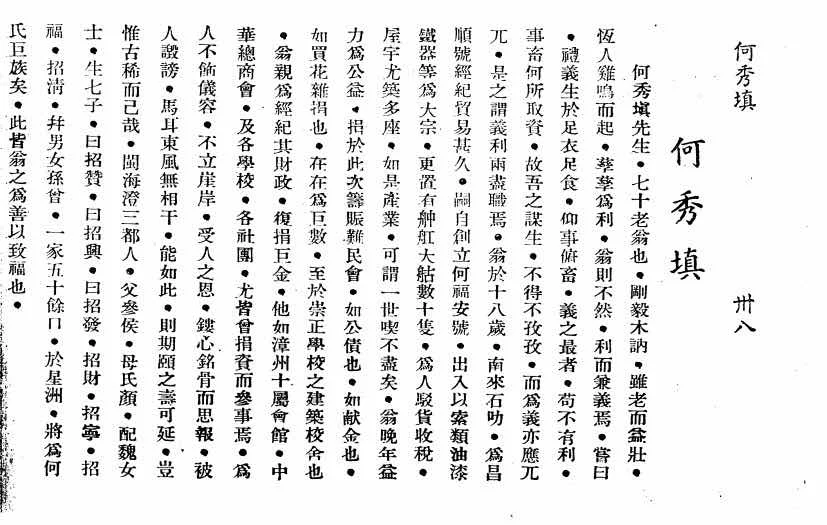 何秀填 卅八
何秀填
何秀塡先生●七十老翁也●剛毅木訥●雖老而益壯●
恆人雞鳴而起●孳孳爲利●翁則不然●利而兼義焉●嘗曰
●禮義生於足衣足食●仰事俯畜●義之最者●苟不有利●
事畜何所取資●故吾之謀生●不得不孜孜●而爲義亦應兀
兀●是之謂義利兩盡職焉●翁於十八歲●南來石叻●爲昌
順號經紀貿易甚久●嗣自創立何福安號●出入以索類油漆
鐵器等爲大宗●更置有舯舡大𦩷數十隻●爲人駁貨收稅●
屋宇尤築多座●如是產業●可謂一世喫不盡矣●翁晚年益
力爲公益●捐於此次籌賑難民會●如公債也●如献金也●
如買花雜捐也●在在爲巨數●至於崇正學校之建築校舍也
●翁親爲經紀其財政●復捐巨金●他如漳州十屬會館●中
華總商會●及各學校●各社團●尤皆曾捐資而參事焉●爲
人不飾儀容●不立崖岸●受人之恩●鏤心銘骨而思報●被
人譭謗●馬耳東風無相干●能如此●則期頤之壽可延●豈
惟古稀而己哉●閩海澄三都人●父參侯●母氏顏●配魏女
士●生七子●曰招贊●曰招興●曰招發●招財●招寧●招
福●招淸●幷男女孫曾●一家五十餘口●於星洲●將爲何
氏巨族矣●此皆翁之爲善以致福也●